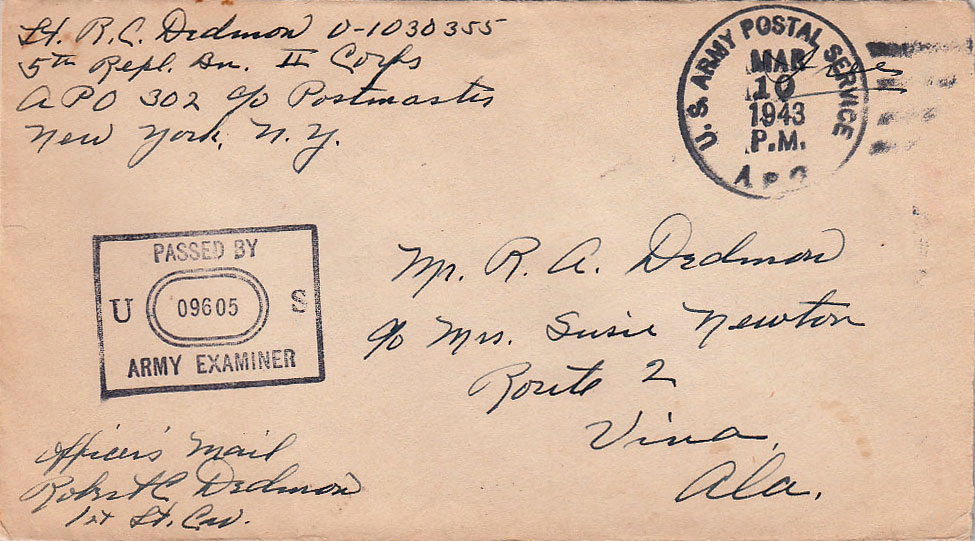 Lt. R.C. Dedmon O-1030355
5th Repl. Bn. II Corps
APO 302 c/o Postmaster
New York, N.Y.
U.S. ARMY POSTAL SERVICE
MAR
10
1943
P.M.
A.P.O.
Free
PASSED BY
U 09605 S
ARMY EXAMINER
Mr. R. A. Dedmon
c/o Mrs. Susie Newton
Route 2
Vina,
Ala.
Officer's Mail
Robert C. Dedmon
1st Lt. Cav.